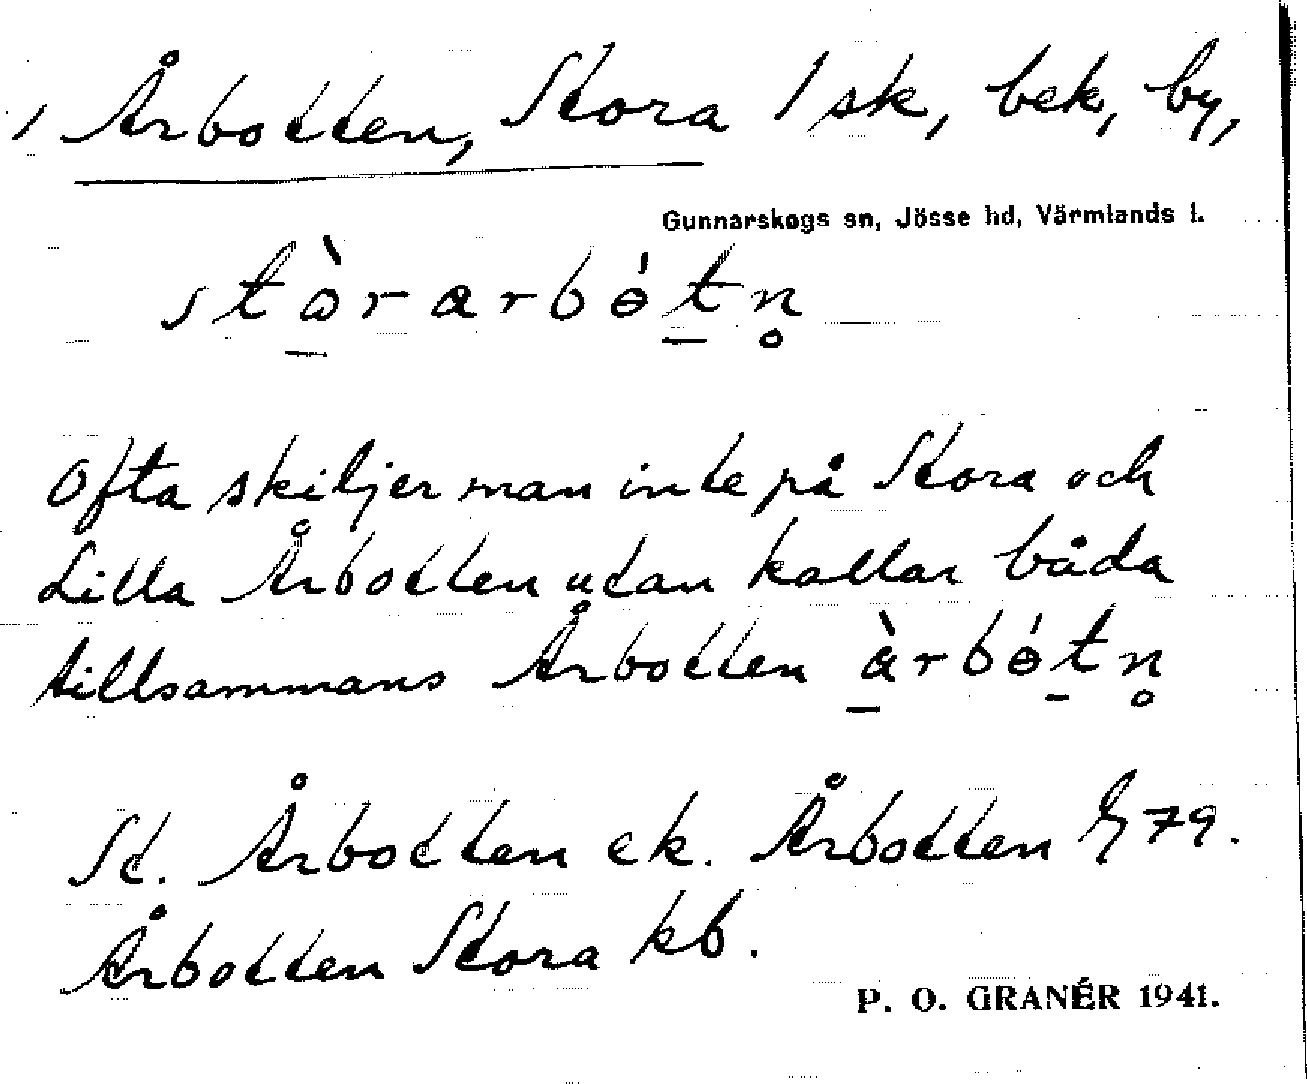 Årbotten, Stora 1 sk, bek, by,
Gunnarskogs sn, Jösse hd, Värmlands l.
stòrarbótn̥
Ofta skiljer man inte på Stora och
Lilla Årbotten utan kallar båda
tillsammans Årbotten àrbótn̥
St. Årbotten ek. Årbotten 79.
Årbotten Stora kb.
P. O. GRANÉR 1941.